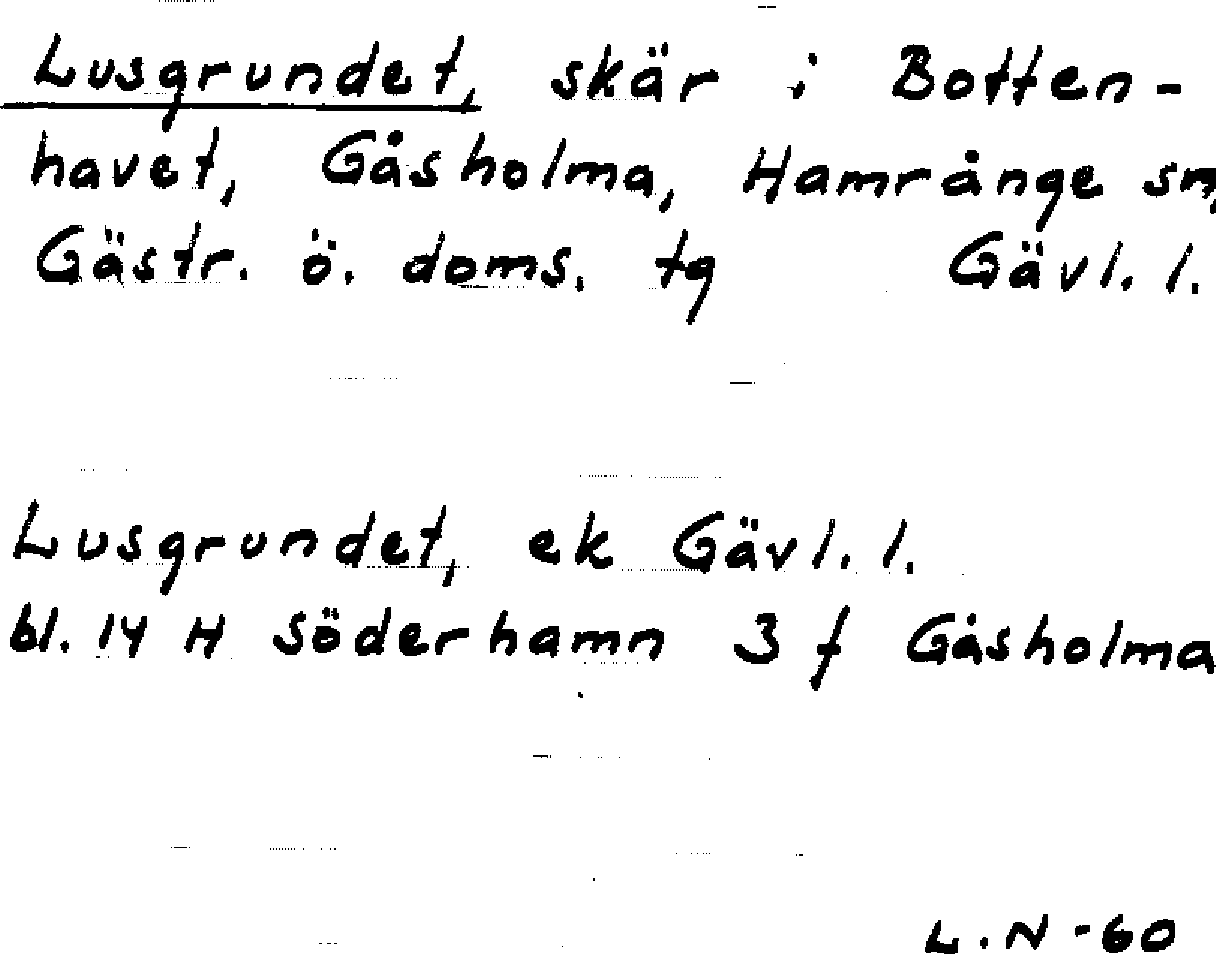 Lusgrundet, skär i Botten-
havet, Gåsholma, Hamrånge sn,
Gästr. ö. doms. tg Gävl. l.
Lusgrundet, ek Gävl. l.
bl. 14 H Söderhamn 3 f Gåsholma
L.N -60